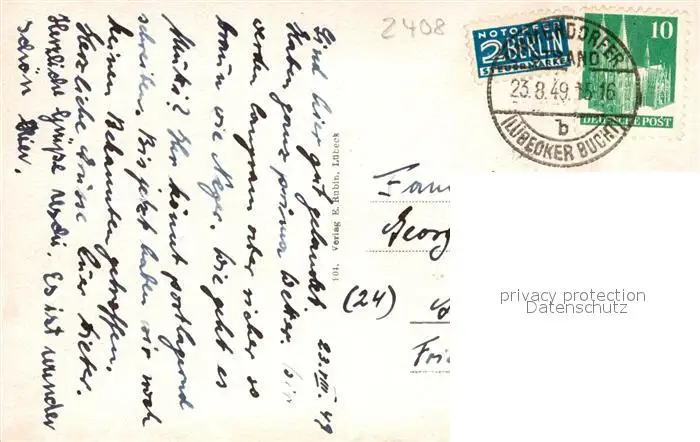 2408
NOTOPFER
2 BERLIN
STEUERMARKE
10
DEUTSCHE POST
TIMMENDORFER
STRAND
23.8.49.15-16
b
(LÜBECKER BUCHT)
23. VIII. 49
Sind hier gut gelandet.
Haben ganz prima Wetter. Wir
werden langsam aber sicher so
braun wie Neger. Wie geht es
Mutti? Ihr könnt postlagernd
schreiben. Bis jetzt haben wir noch
keinen Bekannten getroffen.
Herzliche Grüsse Euer Dieter.
Herzliche Grüße Es ist wunder
schön hier.
104. Verlag E. Rubin, Lübeck
Fam
Georg
(24)
Frie
privacy protection
Datenschutz